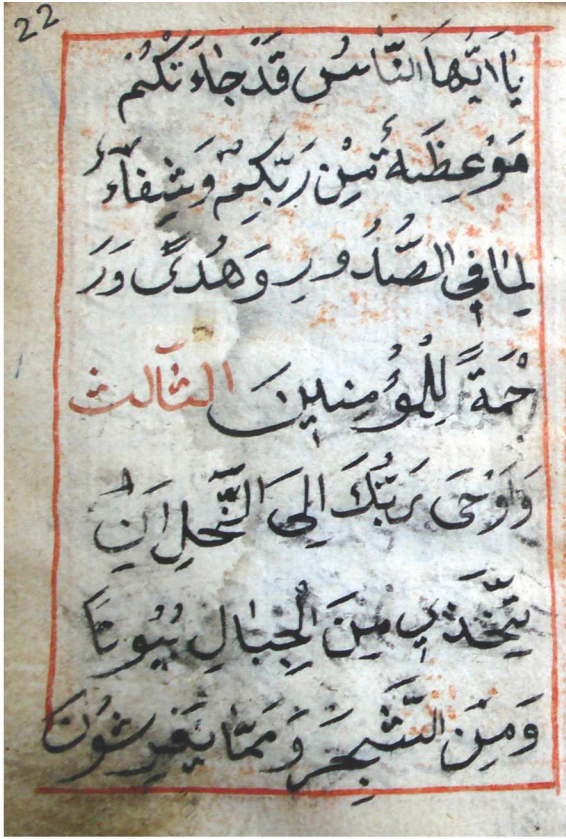 22
يَا اَيُّهَا النَّاسُ قَدْ جَاءَ تْكُمْ
مَوْعِظَةٌ مِنْ رَبِّكُمْ وَشِفَاءٌ
لِمَا فِى الصُّدُورِ وَهُدًى وَرَ
حْمَةً لِلْمُؤْمِنِينَ الثالث
وَاَوْحَى رَبُّكَ اِلَى النَّحْلِ اَنْ
يَتَّخِذِي مِنَ الْجِبَالِ بُيُوتًا
وَمِنَ الشَّجَرِ وَمِمَّا يَفْرِشُونَ